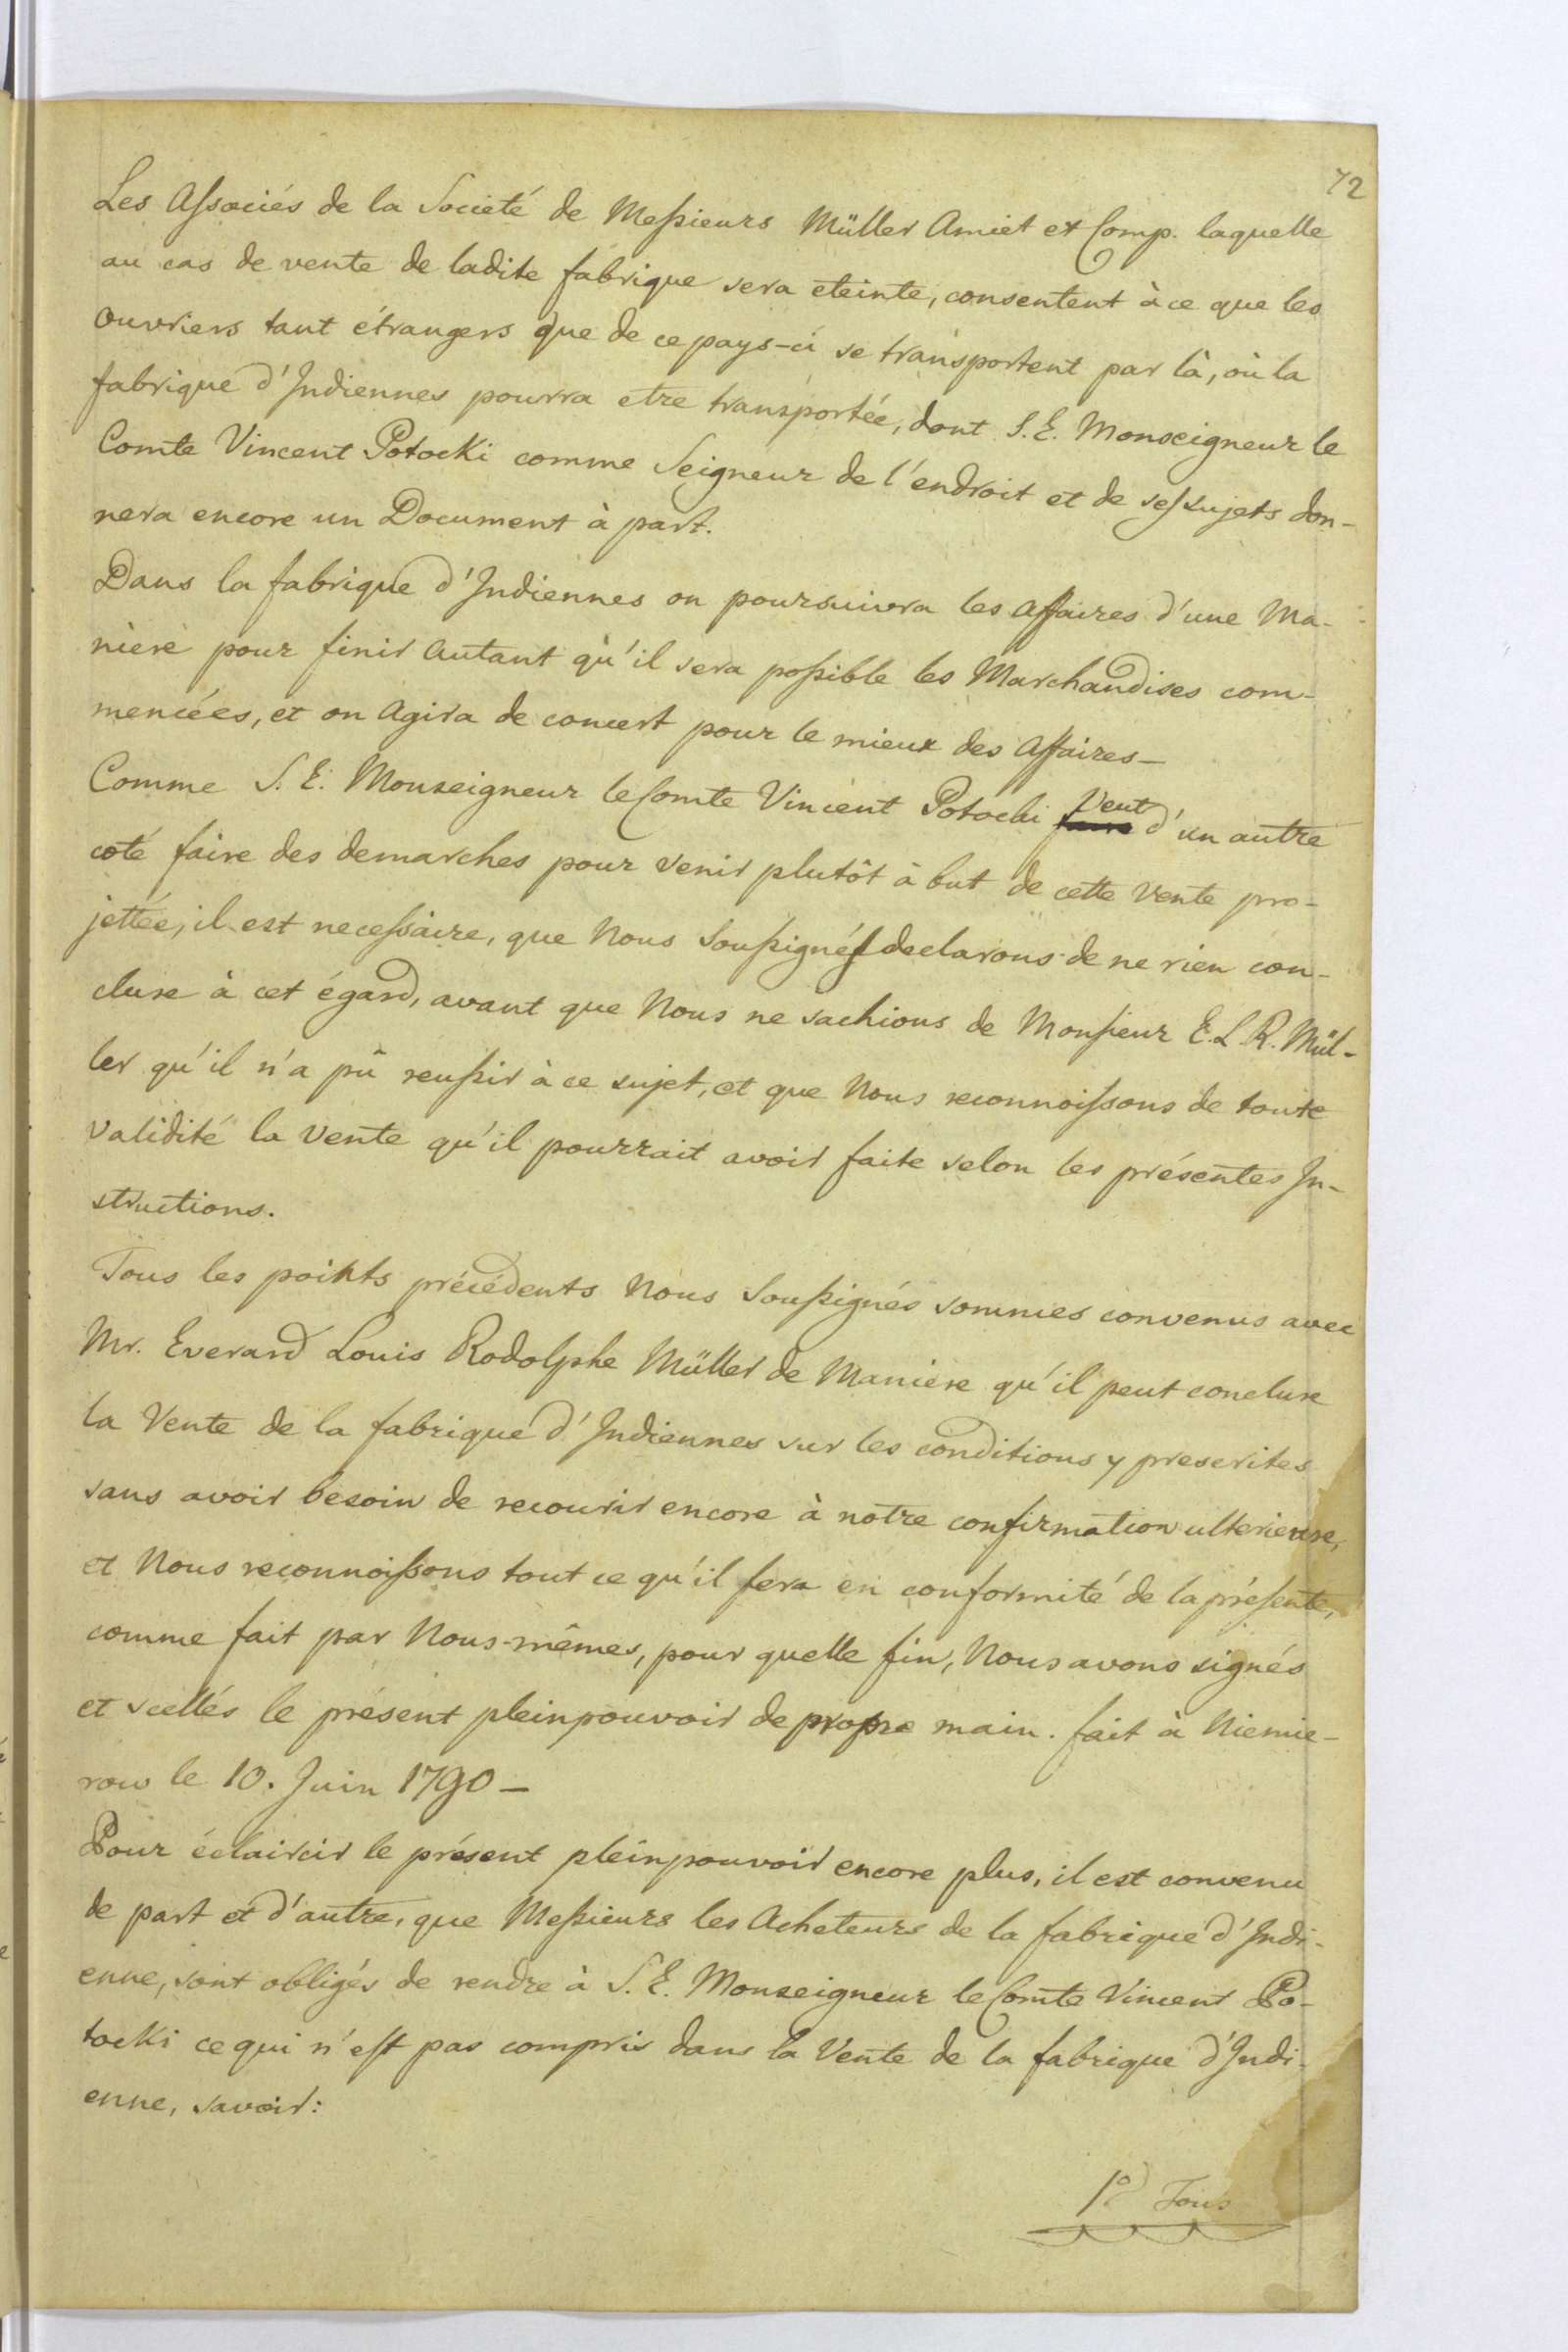 72
Les Associés de la Societé de Messieurs Müller Amiet et Comp. laquelle
au cas de vente de ladite fabrique sera eteinte, consentent à ce que les
Ouvriers tant étrangers que de ce pays-ci se transportent par là, où la
fabrique d'Indiennes pourra etre transportée, dont S. E. Monseigneur le
Comte Vincent Potocki comme Seigneur de l'endroit et de ses sujets don-
nera encore un Document à part.
Dans la fabrique d'Indiennes on poursuivra les Affaires d'une Ma-
niere pour finir autant qu'il sera possible les Marchandises com-
mencées, et on agira de concert pour le mieux des Affaires—
Comme S. E. Monseigneur le Comte Vincent Potocki Veut d'un autre
coté faire des demarches pour venir plutôt à but de cette Vente pro-
jettée, il est necessaire, que Nous Soussignés declarons de ne rien con-
clure à cet égard, avant que Nous ne sachions de Monsieur E. L. R. Mül-
ler qu'il n'a pû reussir à ce sujet, et que Nous reconnoissons de toute
validité la Vente qu'il pourrait avoir faite selon les présentes In-
structions.
Tous les points précédents Nous Soussignés sommes convenus avec
Mr. Everard Louis Rodolphe Müller de Maniere qu'il peut conclure
la Vente de la fabrique d'Indiennes sur les conditions y prescrites
sans avoir besoin de recourir encore à notre confirmation ulterieure,
et Nous reconnoissons tout ce qu'il fera en conformité de la présente,
comme fait par Nous-mêmes, pour quelle fin, Nous avons signés
et scellés le présent pleinpouvoir de propre main. fait à Niemie-
row le 10. Juin 1790—
Pour éclaircir le présent pleinpouvoir encore plus, il est convenu
de part et d'autre, que Messieurs les Acheteurs de la fabrique d'Indi-
enne, sont obligés de rendre à S. E. Monseigneur le Comte Vincent Po-
tocki ce qui n'est pas compris dans la Vente de la fabrique d'Indi-
enne, savoir:
1º) Tous